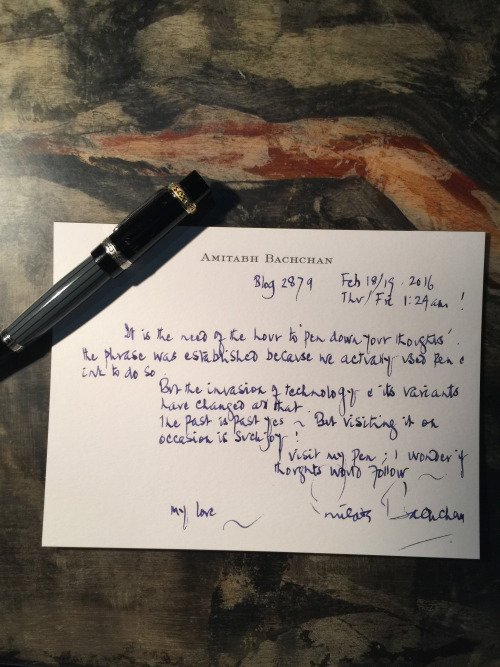 AMITABH BACHCHAN
Blog 2879 Feb 18/19 . 2016
Thr/Fri 1:29 am !
It is the need of the hour to 'pen down your thoughts'.
the phrase was established because we actually used pen &
ink to do so .
But the invasion of technology & its variants
have changed all that .
The past is past yes ~ But visiting it on
occasion is such joy !
I visit my pen ; I wonder if
thoughts would follow ~
Bachchan
my love ~